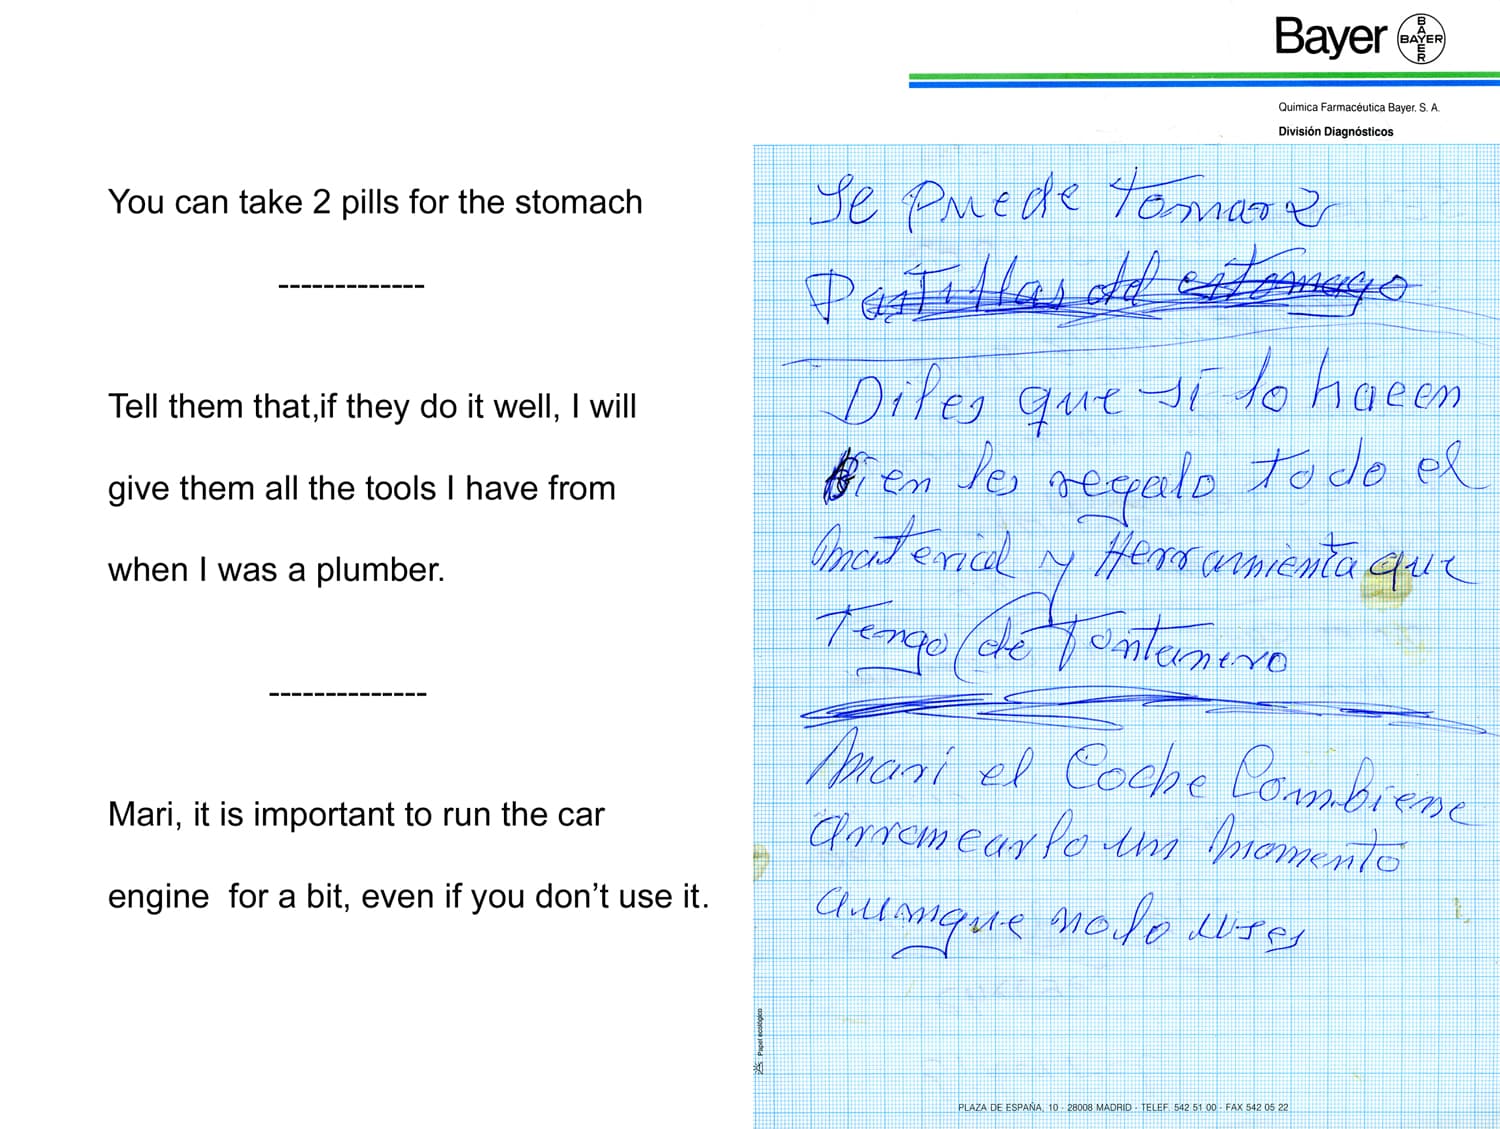 You can take 2 pills for the stomach
-------------
Tell them that,if they do it well, I will
give them all the tools I have from
when I was a plumber.
--------------
Mari, it is important to run the car
engine  for a bit, even if you don’t use it.
Bayer
BAYER
BAYER
Quimica Farmacéutica Bayer. S. A.
División Diagnósticos
Se Puede tomar 2
Pastillas del estomago
Diles que si lo hacen
bien les regalo todo el
material y Herramienta que
Tengo de Fontanero
Mari el Coche Combiene
arrancarlo un momento
aunque no lo uses
Papel ecológico
PLAZA DE ESPAÑA, 10 - 28008 MADRID - TELEF. 542 51 00 - FAX 542 05 22